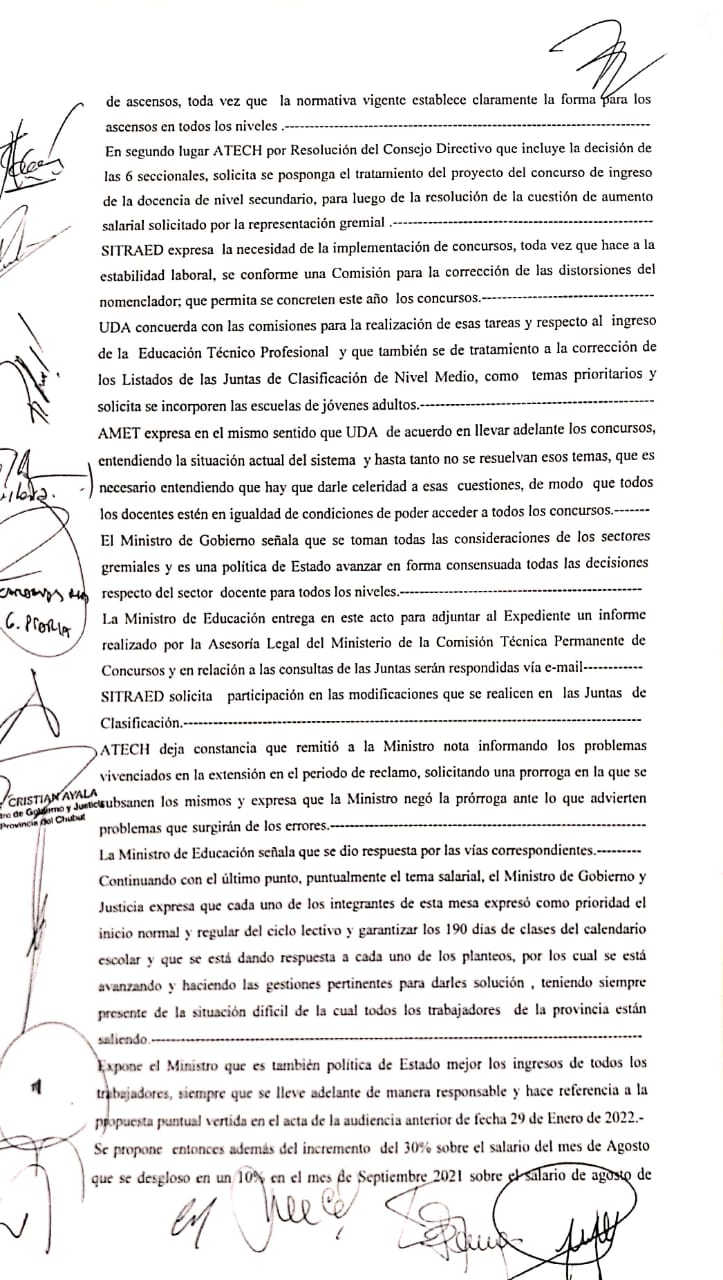 de ascensos, toda vez que la normativa vigente establece claramente la forma para los
ascensos en todos los niveles .------------------------------------------------------------------------
En segundo lugar ATECH por Resolución del Consejo Directivo que incluye la decisión de
las 6 seccionales, solicita se posponga el tratamiento del proyecto del concurso de ingreso
de la docencia de nivel secundario, para luego de la resolución de la cuestión de aumento
salarial solicitado por la representación gremial .----------------------------------------------------
SITRAED expresa la necesidad de la implementación de concursos, toda vez que hace a la
estabilidad laboral, se conforme una Comisión para la corrección de las distorsiones del
nomenclador; que permita se concreten este año los concursos.----------------------------------
UDA concuerda con las comisiones para la realización de esas tareas y respecto al ingreso
de la Educación Técnico Profesional y que también se de tratamiento a la corrección de
los Listados de las Juntas de Clasificación de Nivel Medio, como temas prioritarios y
solicita se incorporen las escuelas de jóvenes adultos.-----------------------------------------------
AMET expresa en el mismo sentido que UDA de acuerdo en llevar adelante los concursos,
entendiendo la situación actual del sistema y hasta tanto no se resuelvan esos temas, que es
necesario entendiendo que hay que darle celeridad a esas cuestiones, de modo que todos
los docentes estén en igualdad de condiciones de poder acceder a todos los concursos.-------
El Ministro de Gobierno señala que se toman todas las consideraciones de los sectores
gremiales y es una política de Estado avanzar en forma consensuada todas las decisiones
respecto del sector docente para todos los niveles.------------------------------------------------
G. PIORIA
La Ministro de Educación entrega en este acto para adjuntar al Expediente un informe
realizado por la Asesoría Legal del Ministerio de la Comisión Técnica Permanente de
Concursos y en relación a las consultas de las Juntas serán respondidas vía e-mail------------
SITRAED solicita participación en las modificaciones que se realicen en las Juntas de
Clasificación.-------------------------------------------------------------------------------------------
ATECH deja constancia que remitió a la Ministro nota informando los problemas
vivenciados en la extensión en el periodo de reclamo, solicitando una prorroga en la que se
CRISTIAN AYALA
tro de Gobierno y Justicia
Provincia del Chubut
subsanen los mismos y expresa que la Ministro negó la prórroga ante lo que advierten
problemas que surgirán de los errores.---------------------------------------------------------------
La Ministro de Educación señala que se dio respuesta por las vías correspondientes.---------
Continuando con el último punto, puntualmente el tema salarial, el Ministro de Gobierno y
Justicia expresa que cada uno de los integrantes de esta mesa expresó como prioridad el
inicio normal y regular del ciclo lectivo y garantizar los 190 dias de clases del calendario
escolar y que se está dando respuesta a cada uno de los planteos, por los cual se está
avanzando y haciendo las gestiones pertinentes para darles solución , teniendo siempre
presente de la situación dificil de la cual todos los trabajadores de la provincia están
saliendo.--------------------------------------------------------------------------------------------------
Expone el Ministro que es también política de Estado mejor los ingresos de todos los
trabajadores, siempre que se lleve adelante de manera responsable y hace referencia a la
propuesta puntual vertida en el acta de la audiencia anterior de fecha 29 de Enero de 2022.-
Se propone entonces además del incremento del 30% sobre el salario del mes de Agosto
que se desgloso en un 10% en el mes de Septiembre 2021 sobre el salario de agosto de